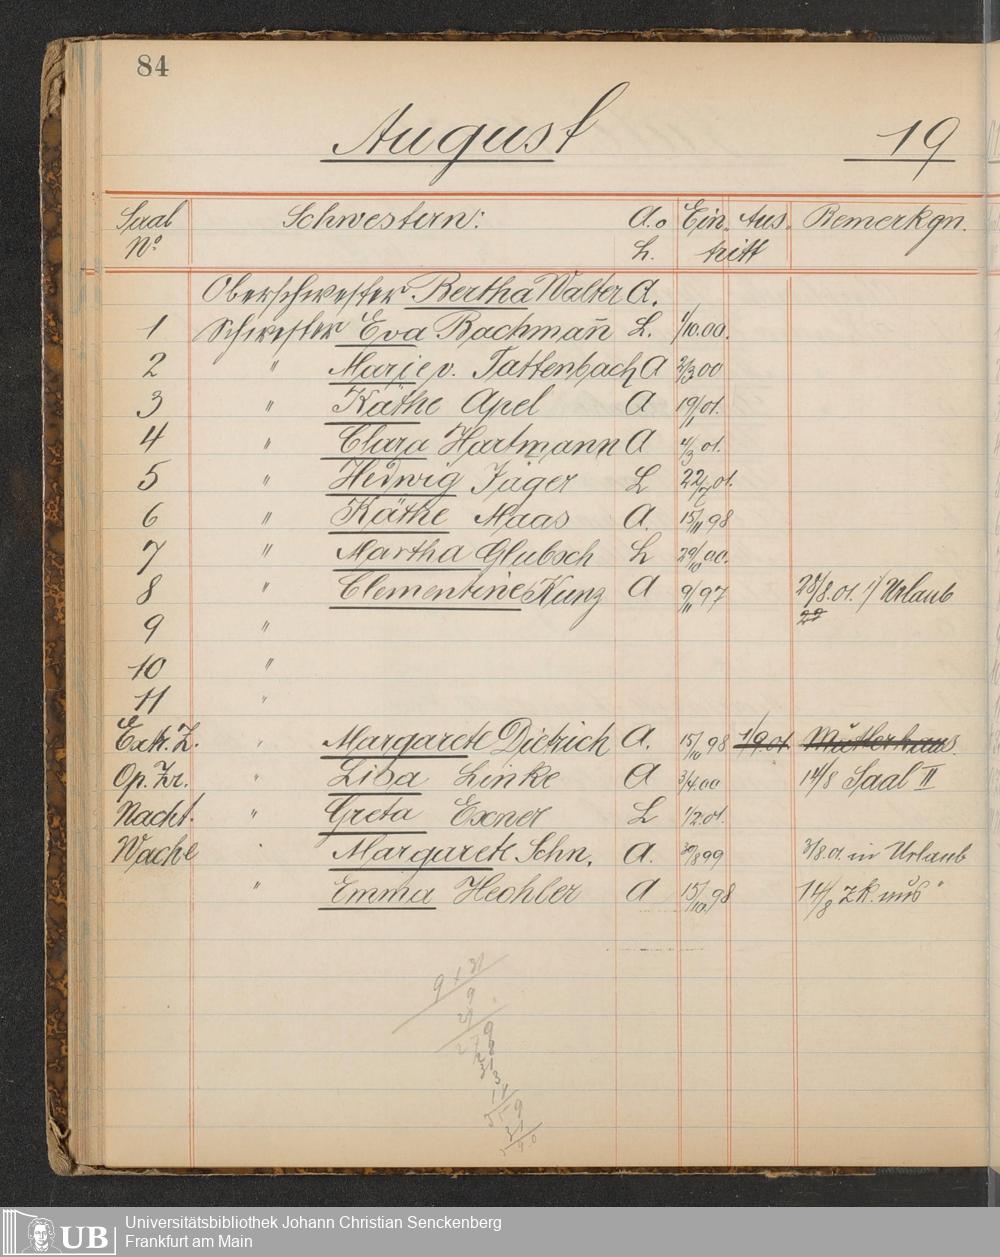 84
August 19
Saal Schwestern: A. o. Ein- Aus- Bemerkgn.
No. L. tritt
Oberschwester Bertha Walter A.
1 Schwester Eva Bachmañ L. 1/10.00.
2 " Marie v. Tattenbach A 2/3 00
3 " Käthe Apel A 19/1 01.
4 " Clara Hartmann A 4/3 01.
5 " Hedwig Jäger L 22/7 01.
6 " Käthe Maas A. 15/11 98
7 " Martha Glubsch L 29/10 00.
8 " Clementine Kunz A 9/11 97 28/8.01. i/ Urlaub
29
9 "
10 "
11 "
Extr. Z. " Margarete Dietrich A. 15/10 98 1/9 01 Mutterhaus.
Op. Zr. " Lisa Linke A 3/4.00 14/8 Saal II
Nacht. " Greta Exner L 1/2.01.
Wache " Margarete Schn. A. 30/8 99 3/8.01. in Urlaub
" Emma Hechler A 15/10. 98 14/8 zk.
9 x 31
9